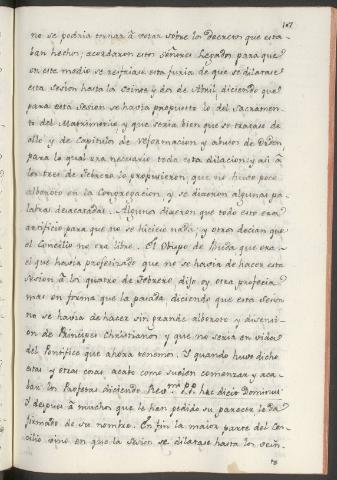 107
no se podria tornar à votar sobre los Decretos que esta-
ban hechos; acordaron estos señores Legados para que
en este medio se resfriase esta furia de que se dilatase
esta Sesion hasta la veinte y dos de Abril, diciendo que
para esta Sesion se havia propuesto lo del Sacramen-
to del Matrimonio y que seria bien que se tratase de
ello y de Capitulos de reformacion y abusos de Orden,
para lo qual era necesario toda esta dilacion; y asi à
los tres de Febrero lo propusieron, que no huvo poco
alboroto en la Congregacion, y se dixeron algunas pa-
labras desacatadas. Algunos dixeron que todo esto era
artificio para que no se hiciese nada, y otros decian que
el Concilio no era libre. El Obispo de Buda que era
el que havia profetizado que no se havia de hacer esta
Sesion à los quatro de Febrero, dijo oy otra profecia
mas en forma que la pasada, diciendo que esta Sesion
no se havia de hacer sin grande alboroto y disensi-
on de Principes Christianos y que no seria en vida
del Pontifice que ahora tenemos. Y quando huvo dicho
esta y otras cosas, acabó como suelen comenzar y aca-
bar los Profetas diciendo, Revmi P.P. hæc dicit Dominus:
Y despues à muchos que le han pedido su parecer le da
firmado de su nombre. En fin la maior parte del Con-
cilio vino en que la Sesion se dilatase hasta los vein-
te